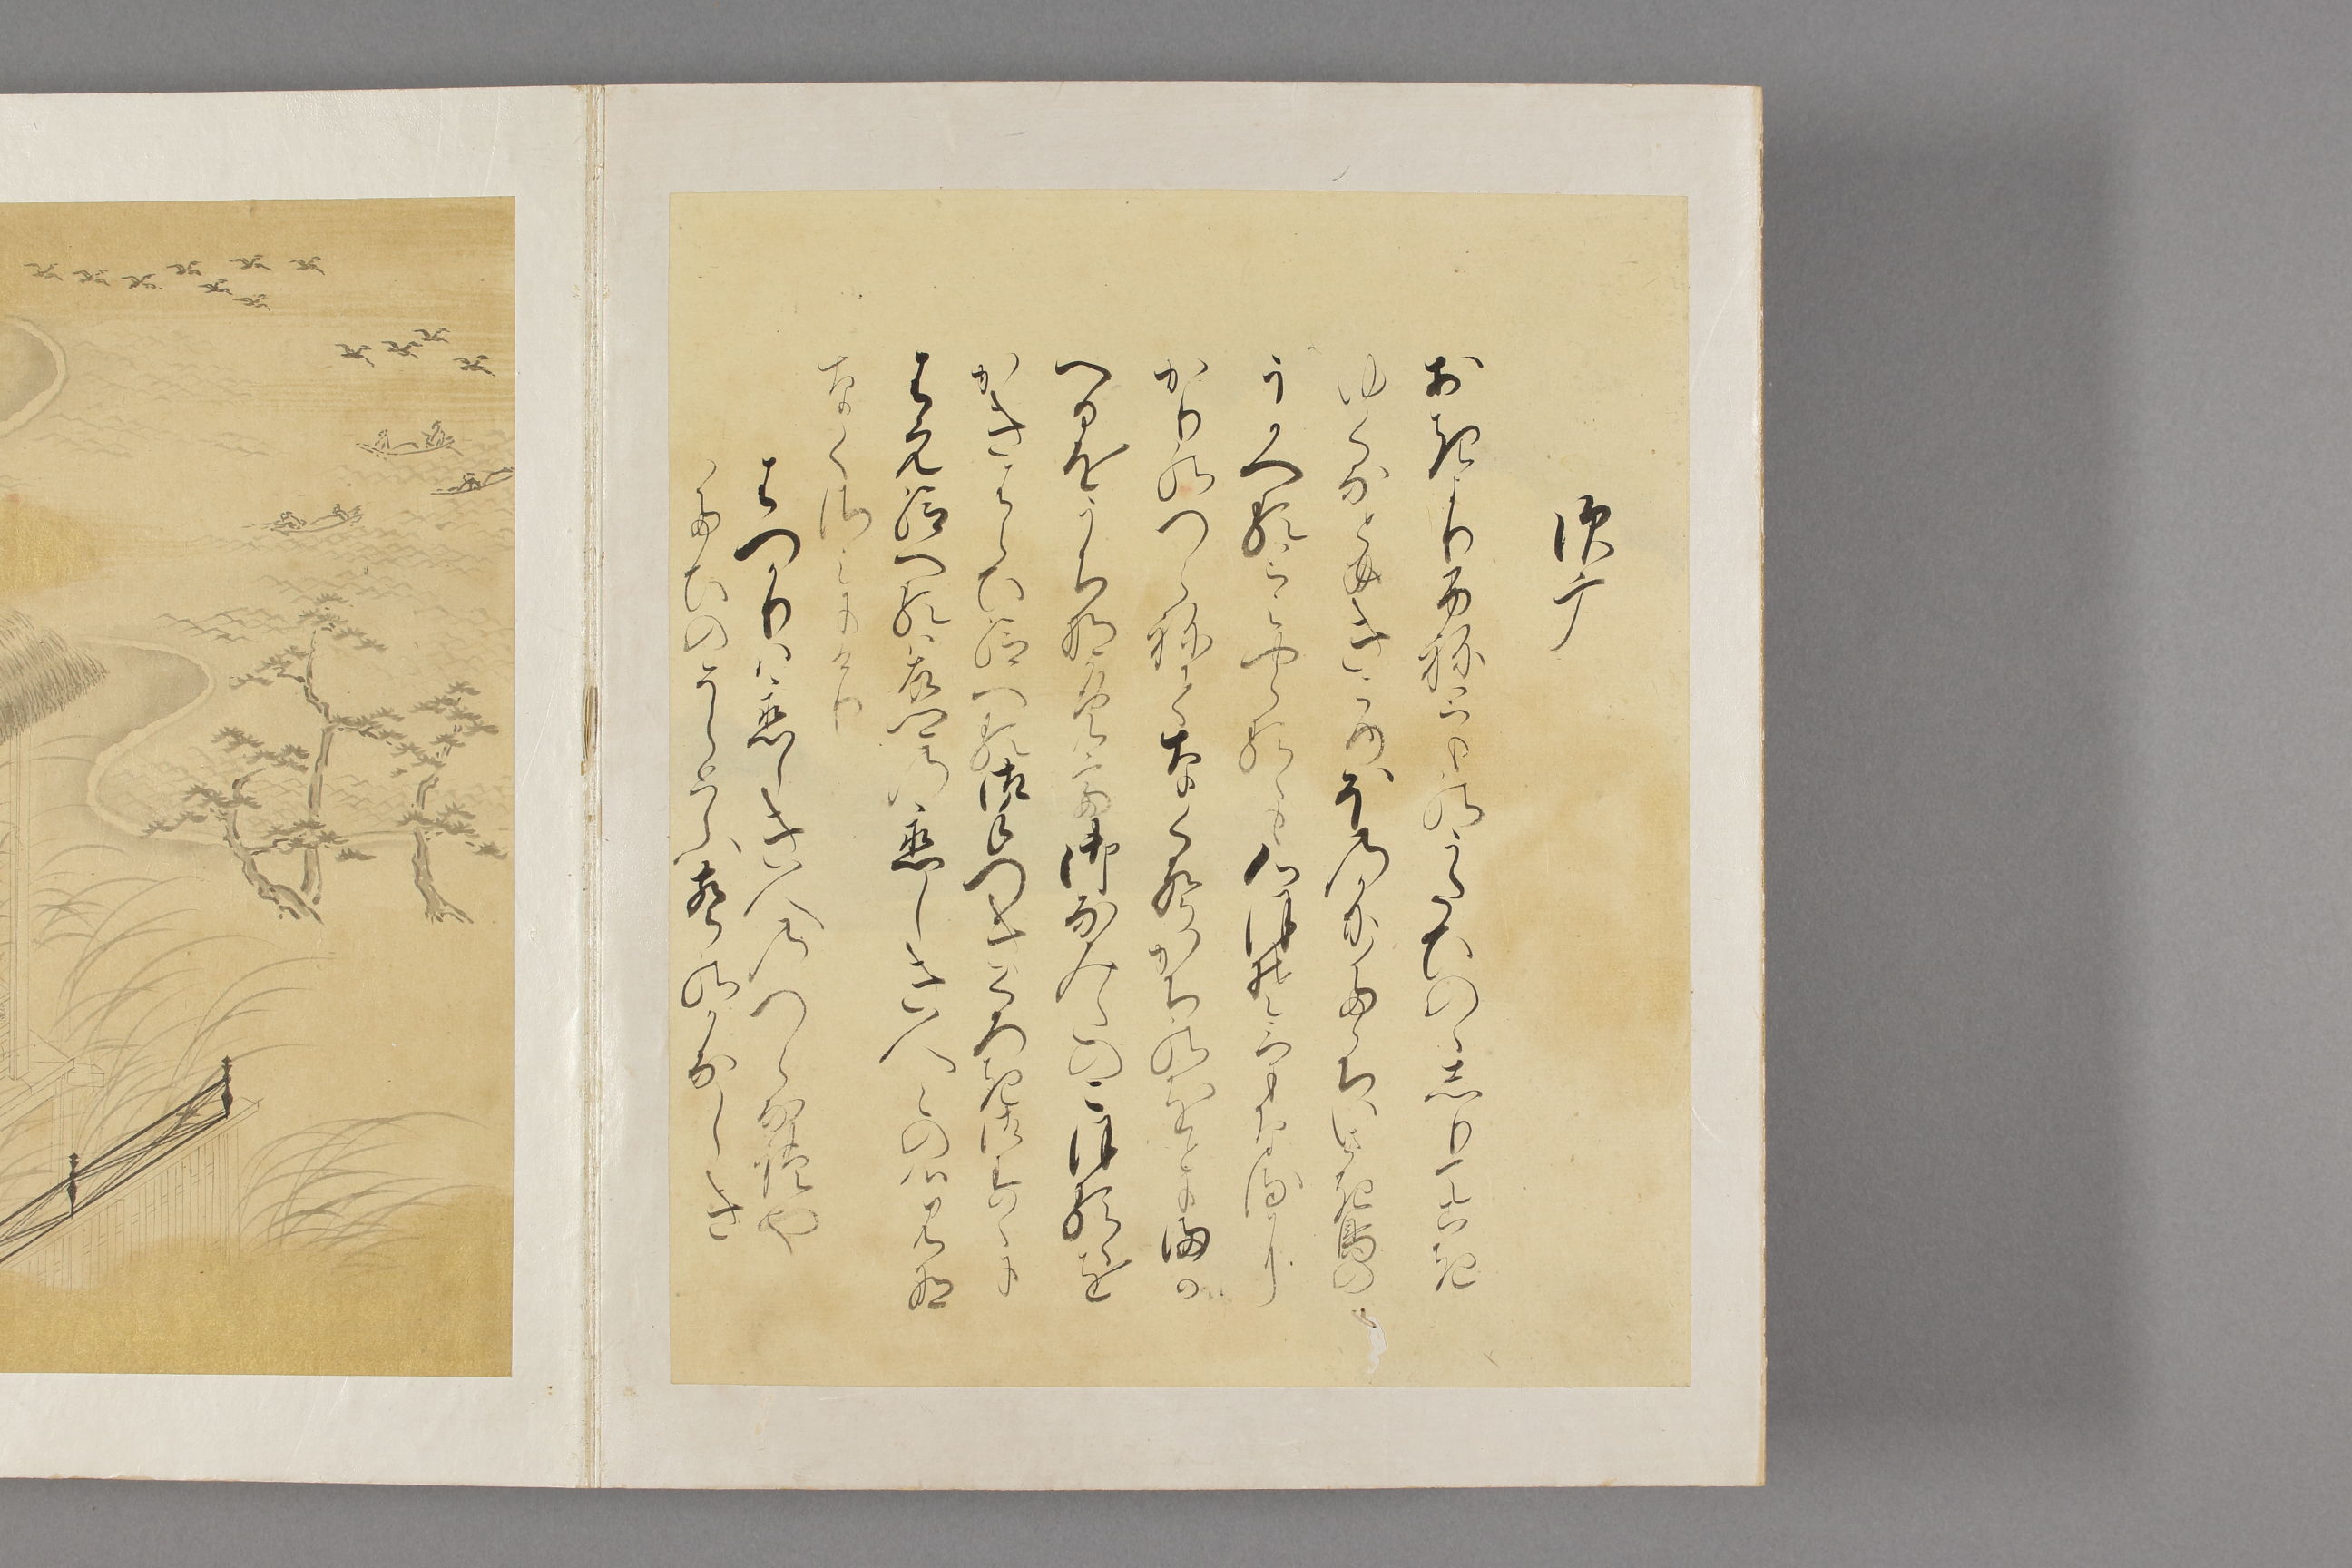 須广
おきより舟とものうたひのゝしりてこき
ゆくなともきこゆほのかにたゝちいさき鳥の
うかへるとみやらるゝも心ほそけなるに
かりのつらねてなくこゑかちのをとにまか
へるをうちなかめ給に御なみたのこほるゝを
かきはらひ給へる御てつきくろき御すゝに
はえ給へるは古郷の恋しき人〱の心みな
なくさみにけり
はつかりは恋しき人のつらなれや
たひのそらとふこゑのかなしき